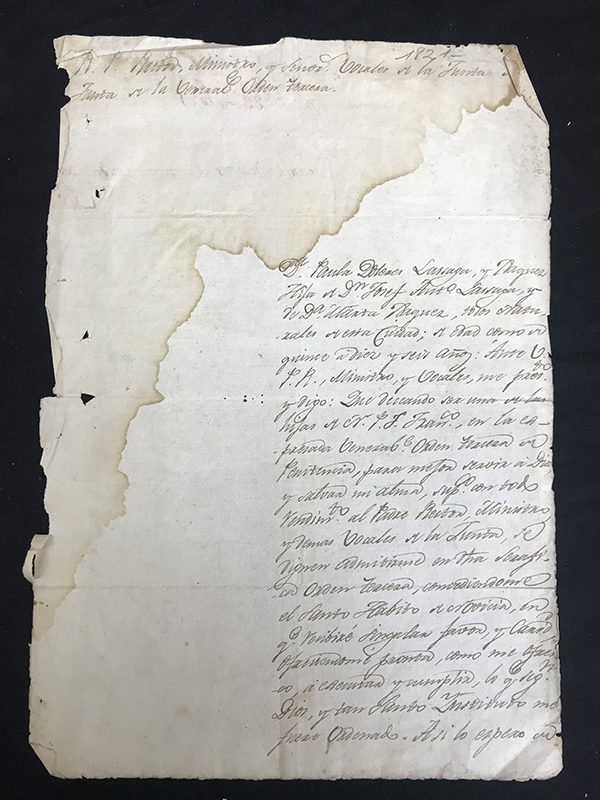 1821
R. P. Rector, Ministro, y Señor.s Vocales de la Junta
Junta de la Venerab.e Orden tercera.
D.a Paula Dolores Lassaga, y Ruquez
Hija de D.n Josef Ant.o Lassaga, y
de D.a Maria Ruquez, todos Natu-
rales de esta Ciudad; de edad como de
quinse a dies y seis años: Ante V.
P. R., Ministro, y Vocales, me pres.to
y digo: Que deceando ser una de las
hijas de N. P. S. Fran.co, en la es-
presada Venerab.e Orden tercera de
Penitencia, para mejor servir a Dios
y salvar mi alma, sup.co con todo
rendim.to al Padre Rector, Ministro
y demas Vocales de la Junta, se
dignen admitirme en dha Serafi-
ca Orden tercera, concediendome
el Santo Habito de, en
q.e recibiré singular favor, y Carid.d
ofreciendome pronta, como me ofres-
co, á executar y cumplir, lo q.e seg.n
Dios, y tan Santo Instituto me
fuere Ordenado. Asi lo espero de